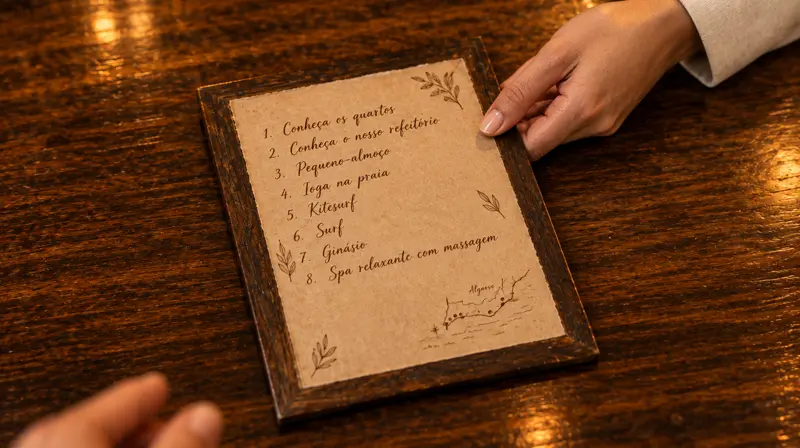 1. Conheça os quartos
2. Conheça o nosso refeitório
3. Pequeno-almoço
4. Ioga na praia
5. Kitesurf
6. Surf
7. Ginásio
8. Spa relaxante com massagem
Algarve